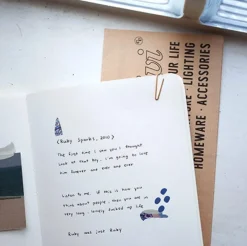 (Ruby Sparks, 2012)
The first time I saw you I thought
look at that boy.. i'm going to love
him forever and ever and ever
Listen to me. if this is how you
think about people, then you are in
very long, lonely, fucked up life
Ruby not just Ruby
YOUR LIFE
· LIGHTING
HOMEWARE · ACCESSORIES